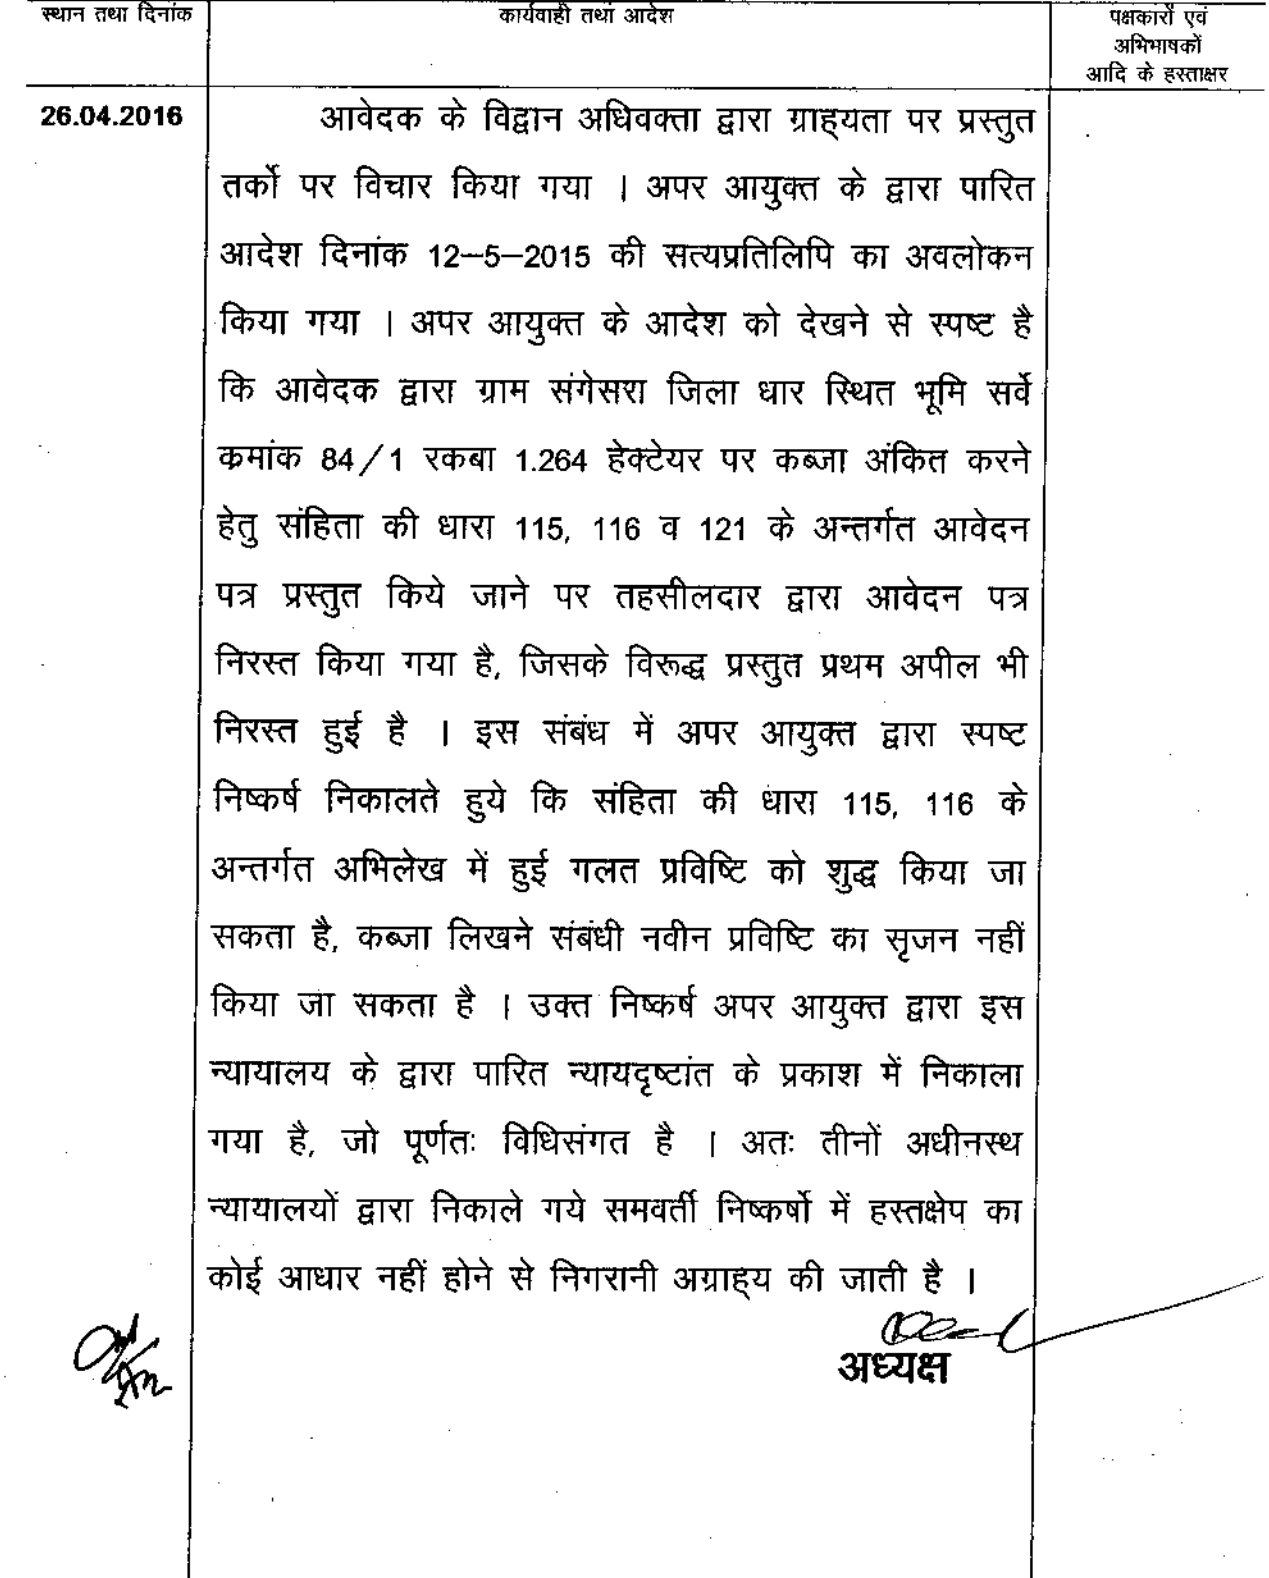 स्थान तथा दिनांक
कार्यवाही तथा आदेश
पक्षकारों एवं
अभिभाषकों
आदि के हस्ताक्षर
26.04.2016
आवेदक के विद्वान अधिवक्ता द्वारा ग्राह्यता पर प्रस्तुत
तर्को पर विचार किया गया । अपर आयुक्त के द्वारा पारित
आदेश दिनांक 12–5–2015 की सत्यप्रतिलिपि का अवलोकन
किया गया । अपर आयुक्त के आदेश को देखने से स्पष्ट है
कि आवेदक द्वारा ग्राम संगेसरा जिला धार स्थित भूमि सर्वे
कमांक 84/1 रकबा 1.264 हेक्टेयर पर कब्जा अंकित करने
हेतु संहिता की धारा 115, 116 व 121 के अन्तर्गत आवेदन
पत्र प्रस्तुत किये जाने पर तहसीलदार द्वारा आवेदन पत्र
निरस्त किया गया है, जिसके विरूद्ध प्रस्तुत प्रथम अपील भी
निरस्त हुई है । इस संबंध में अपर आयुक्त द्वारा स्पष्ट
निष्कर्ष निकालते हुये कि संहिता की धारा 115, 116 के
अन्तर्गत अभिलेख में हुई गलत प्रविष्टि को शुद्ध किया जा
सकता है, कब्जा लिखने संबंधी नवीन प्रविष्टि का सृजन नहीं
किया जा सकता है । उक्त निष्कर्ष अपर आयुक्त द्वारा इस
न्यायालय के द्वारा पारित न्यायदृष्टांत के प्रकाश में निकाला
गया है, जो पूर्णतः विधिसंगत है । अतः तीनों अधीनस्थ
न्यायालयों द्वारा निकाले गये समवर्ती निष्कर्षो में हस्तक्षेप का
कोई आधार नहीं होने से निगरानी अग्राह्य की जाती है ।
अध्यक्ष